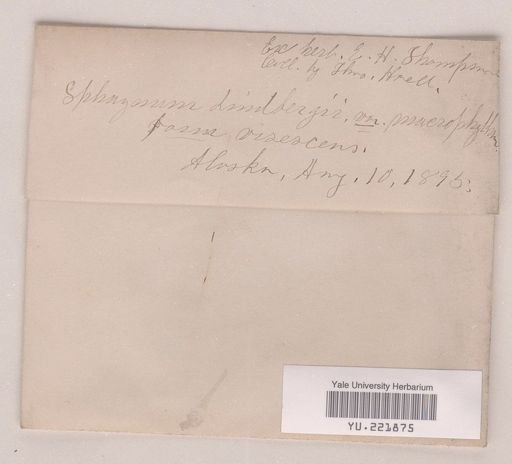 Ex herb. E. H. Thompson
Coll. by Thos. Howell.
Sphagnum lindbergii. var. macrophyllum.
form virescens.
Alaska, Aug. 10, 1895.
Yale University Herbarium
YU.221875